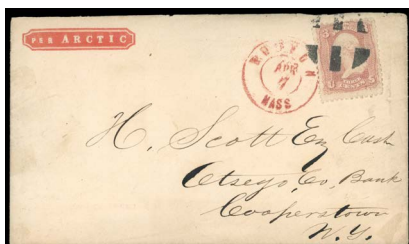 PER ARCTIC
BOSTON
APR
MASS
3
3
U S
H. Scott Esq Cash
Otsego Co. Bank
Cooperstown
N.Y.